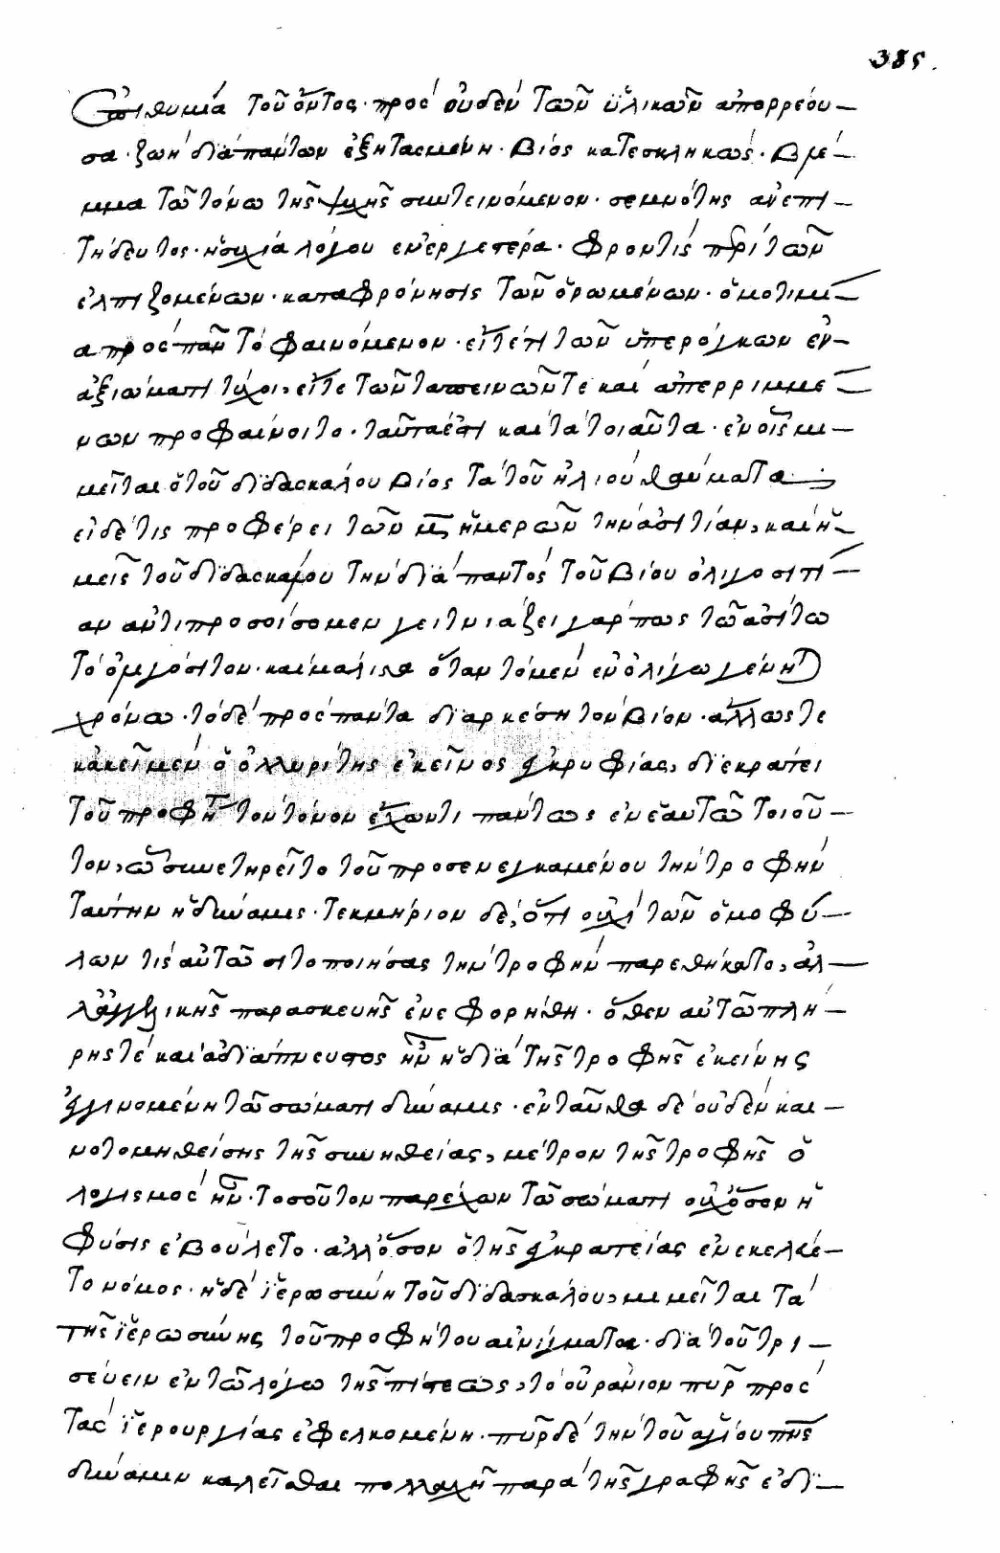 385.
ἐπιθυμία τοῦ ὄντος· πρὸς οὐδὲν τῶν ὑλικῶν ἀπορρέου–
σα· ζωὴ διὰ πάντων ἐξητασμένη· βίος κατεσκληκώς· βλέ–
μμα τῶ τόνω τῆς ψυχῆς συντεινόμενον· σεμνότης ἀνεπι–
τήδευτος· ἡσυχία λόγου ἐνεργεστέρα· φροντὶς περὶ τῶν
ἐλπιζομένων· καταφρόνησις τῶν ὁρωμένων· ὁμοτιμί–
α πρὸς πᾶν τὸ φαινόμενον· εἴτέ τι τῶν ὑπερόγκων ἐν–
ἀξιώματι τύχοι, εἴτε τῶν ταπεινῶν τε καὶ ἀπερριμμέ–
νων προφαίνοιτο· ταῦτα ἐστὶ καὶ τὰ τοιαῦτα· ἐν οἷς μι–
μεῖται ὁ τοῦ διδασκάλου βίος τὰ τοῦ ἡλιοὺ θαύματα
εἰ δέ τις προφέρει τῶν μ ἡμερῶν τὴν ἀσιτίαν, καὶ ἡ–
μεῖς τοῦ διδασκάλου τὴν διὰ παντὸς τοῦ βίου ὀλιγοσιτί–
αν ἀντιπροσοίσομεν γειτνιάζει γάρ πως τῶ ἀσίτω
τὸ ὀλιγόσιτον· καὶ μάλιστα ὅταν τὸ μὲν ἐν ὀλίγω γένηται
χρόνω· τὸ δὲ πρὸς πάντα διαρκέση τὸν βίον· ἄλλως τε
κἀκεῖ μὲν ὁ ὀλυρίτης ἐκεῖνος ἐγκρυφίας, διεκράτει
τοῦ προφήτου τὸν τόνον ἔχων τι πάντως ἐν ἑαυτῶ τοιοῦ–
τον, ὧ συνετηρεῖτο τοῦ προσενεγκαμένου τὴν τροφὴν
ταύτην ἡ δύναμις· τεκμήριον δέ, ὅτι οὐχί τῶν ὁμοφύ–
λων τίς αὐτῶ σιτοποιήσας τὴν τροφὴν παρεθήκατο, ἀλ–
λ' ἀγγελικῆς παρασκευῆς ἐνεφορήθη· ὅθεν αὐτῶ πλή–
ρης τέ καὶ ἀδιάπνευστος ἦν ἡ διὰ τῆς τροφῆς ἐκείνης
ἐγγινομένη τῶ σώματι δύναμις· ἐνταῦθα δὲ οὐδὲν και–
νοτομηθείσης τῆς συνηθείας, μέτρον τῆς τροφῆς ὁ
λογισμὸς ἦν· τοσοῦτον παρέχων τῶ σώματι οὐχ ὅσον ἡ
φύσις ἐβούλετο· ἀλλ' ὅσον ὁ τῆς ἐγκρατείας ἐνεκελεύε–
το νόμος· ἡ δὲ ἱερωσύνη τοῦ διδασκάλου, μιμεῖται τὰ
τῆς ἱερωσύνης τοῦ προφήτου αἰνίγματα· διὰ τοῦ τρι–
σεύειν ἐν τῶ λόγω τῆς πίστεως, τὸ οὐράνιον πῦρ πρὸς
τὰς ἱερουργίας ἐφελκομένη· πῦρ δὲ τὴν τοῦ ἁγίου πνς
δύναμιν καλεῖσθαι πολλαχῆ παρὰ τῆς γραφῆς ἐδι–